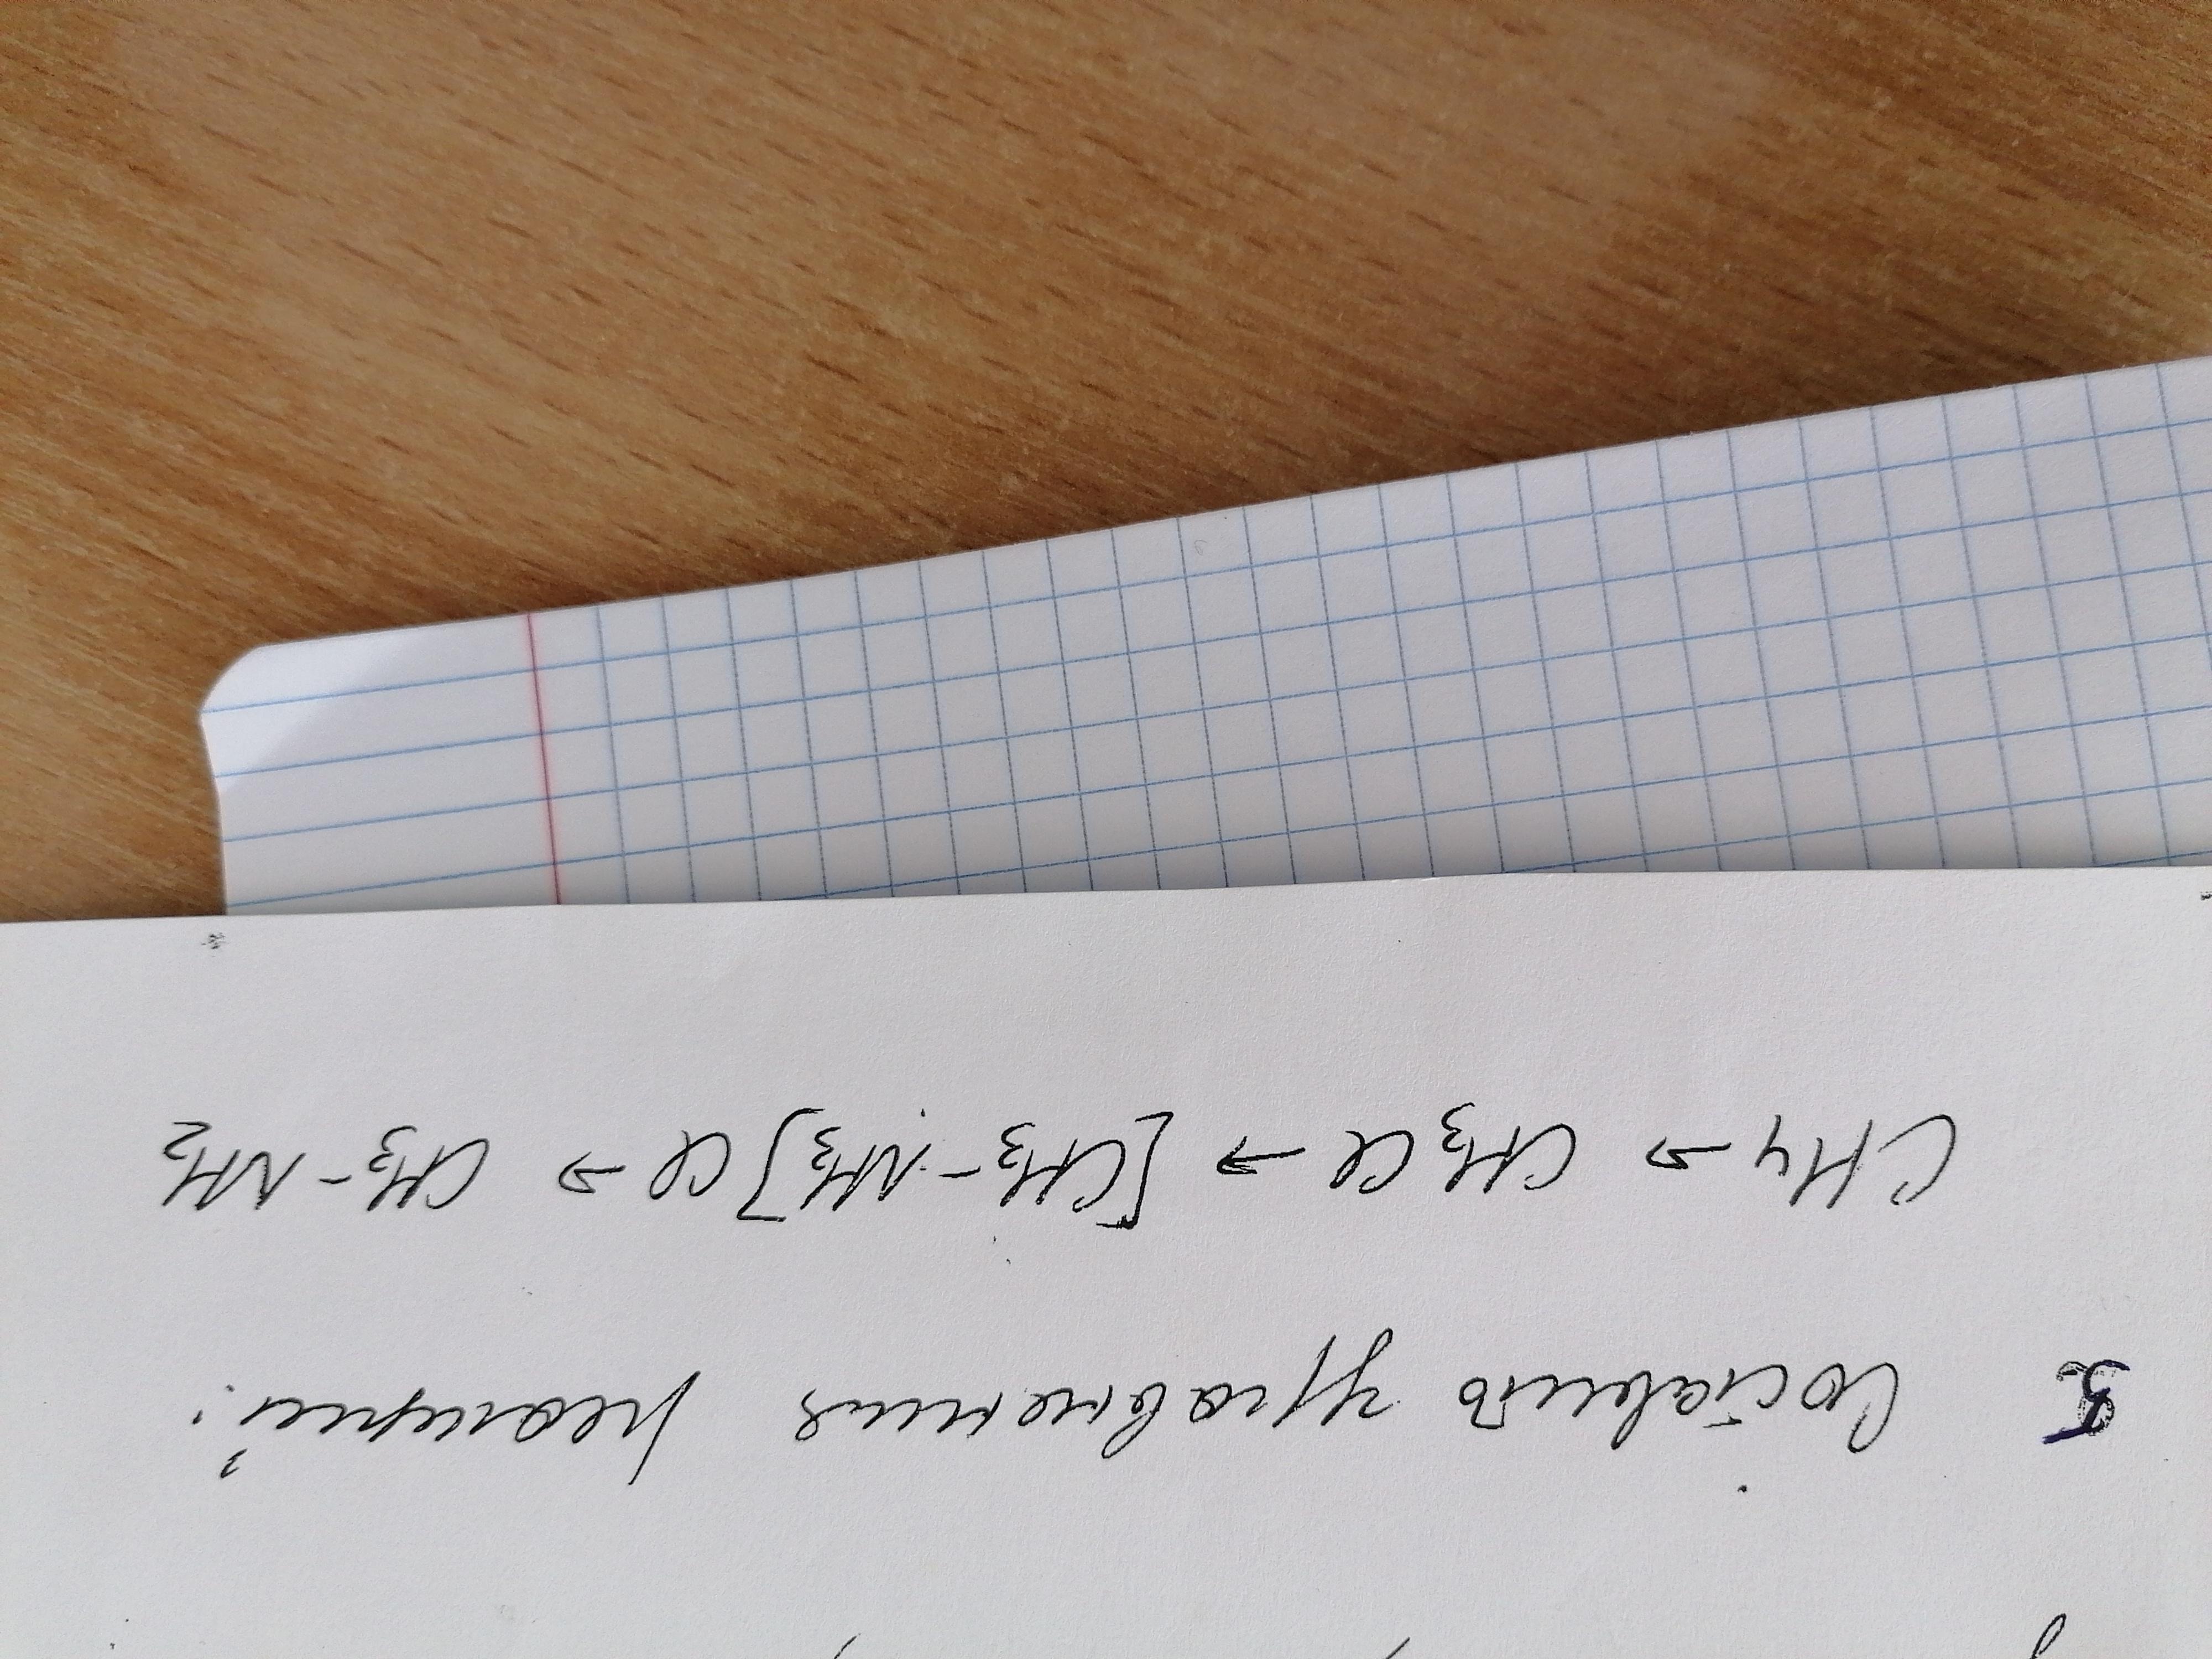 Составить уравнение реакций:
CH4 → CH3Cl → [CH3-NH3]Cl → CH3-NH2